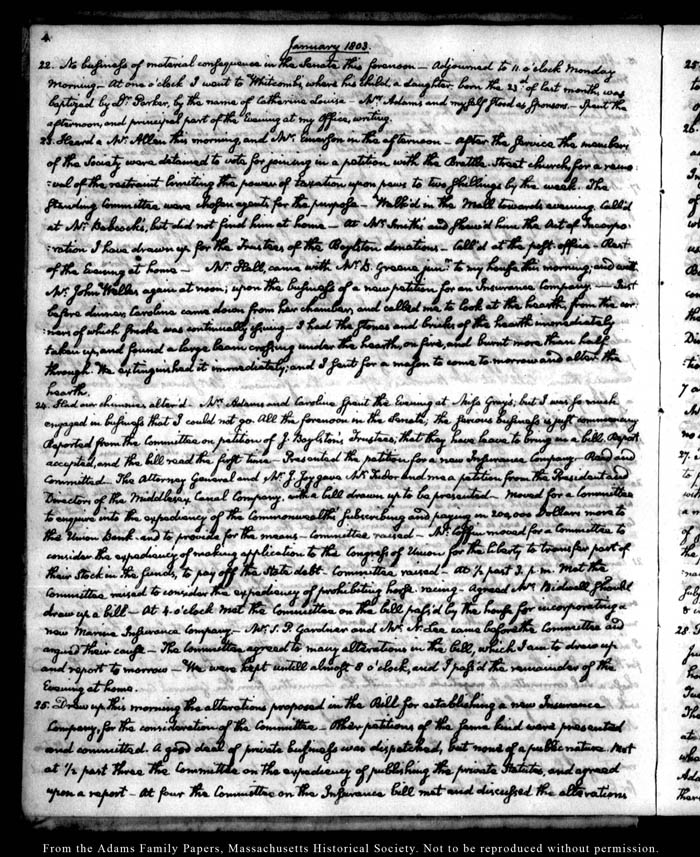 4.
January 1803.
22. No business of material consequence in the Senate this forenoon – Adjourned to 11 o'clock Monday
Morning – At one o'clock I went to Whitcomb's, where his child, a daughter, born the 23d of last month, was
baptized by Dr. Parker, by the name of Catherine Louisa – Mrs. Adams and myself stood as Sponsors – Spent the
afternoon, and principal part of the Evening at my Office, writing.
23. Heard a Mr. Allen this morning, and Mr. Emerson in the afternoon – After the service the members
of the Society were detained to vote for joining in a petition with the Brattle-Street church, for a remo-
:val of the restraint limiting the power of taxation upon pews to two shillings by the week. The
Standing Committee were chosen agents for the purpose – Walk'd in the Mall towards evening. Call'd
at Mr. Babcock's, but did not find him at home – At Mr. Smith's and shew'd him the Act of Incorpo-
:ration I have drawn up for the Trustees of the Boylston donations – Call'd at the post-office – Rest
of the Evening at home – Mr. Hall, came with Mr. D. Greene junr. to my house this morning, and with
Mr. John Welles again at noon; upon the business of a new petition for an Insurance Company. – Just
before dinner, Caroline came down from her chamber, and called me to look at the hearth, from the cor-
:ners of which smoke was continually issuing – I had the stones and bricks of the hearth immediately
taken up, and found a large beam crossing under the hearth, on fire, and burnt more than half
through. We extinguished it immediately; and I sent for a mason to come to-morrow and alter the
hearth.
24. Had our chimnies alter'd – Mrs. Adams and Caroline spent the Evening at Miss Gray's; but I was so much
engaged in business that I could not go. All the forenoon in the Senate; the serious business is just commencing
Reported from the Committee on petition of J. Boylston's Trustees, that they have leave to bring in a bill. Report
accepted, and the bill read the first time. Presented the petition for a new Insurance Company. Read and
Committed. The Attorney General and Mr. J. Joy gave Mr. Tudor and me a petition from the President and
Directors of the Middlesex Canal Company, with a bill drawn up to be presented – Moved for a Committee
to enquire into the expediency of the Commonwealth's subscribing and paying in 200,000 Dollars more to
the Union Bank and to provide for the means – Committee raised – Mr. Coffin moved for a Committee to
consider the expediency of making application to the Congress of Union for the liberty to transfer part of
their Stock in the funds, to pay off the State debt. Committee raised – At ½ past 3. p.m. Met the
Committee raised to consider the expediency of prohibiting horse-racing – Agreed Mr. Bidwell should
draw up a bill – At 4. o'clock met the Committee on the bill pass'd by the house for incorporating a
new Marine Insurance Company – Mr. S. P. Gardner and Mr. N. Lee came before the Committee and
argued their cause – The Committee agreed to many alterations in the bill, which I am to draw up
and report to-morrow – We were kept untill almost 8 o'clock, and I pass'd the remainder of the
Evening at home.
25. Drew up this morning the alterations proposed in the Bill for establishing a new Insurance
Company, for the consideration of the Committee – Other petitions of the same kind were presented
and committed. A good deal of private business was dispatched, but none of a public nature. Met
at ½ past three the Committee on the expediency of publishing the private Statutes, and agreed
upon a report – At four the Committee on the Insurance bill met and discussed the alterations
From the Adams Family Papers, Massachusetts Historical Society. Not to be reproduced without permission.